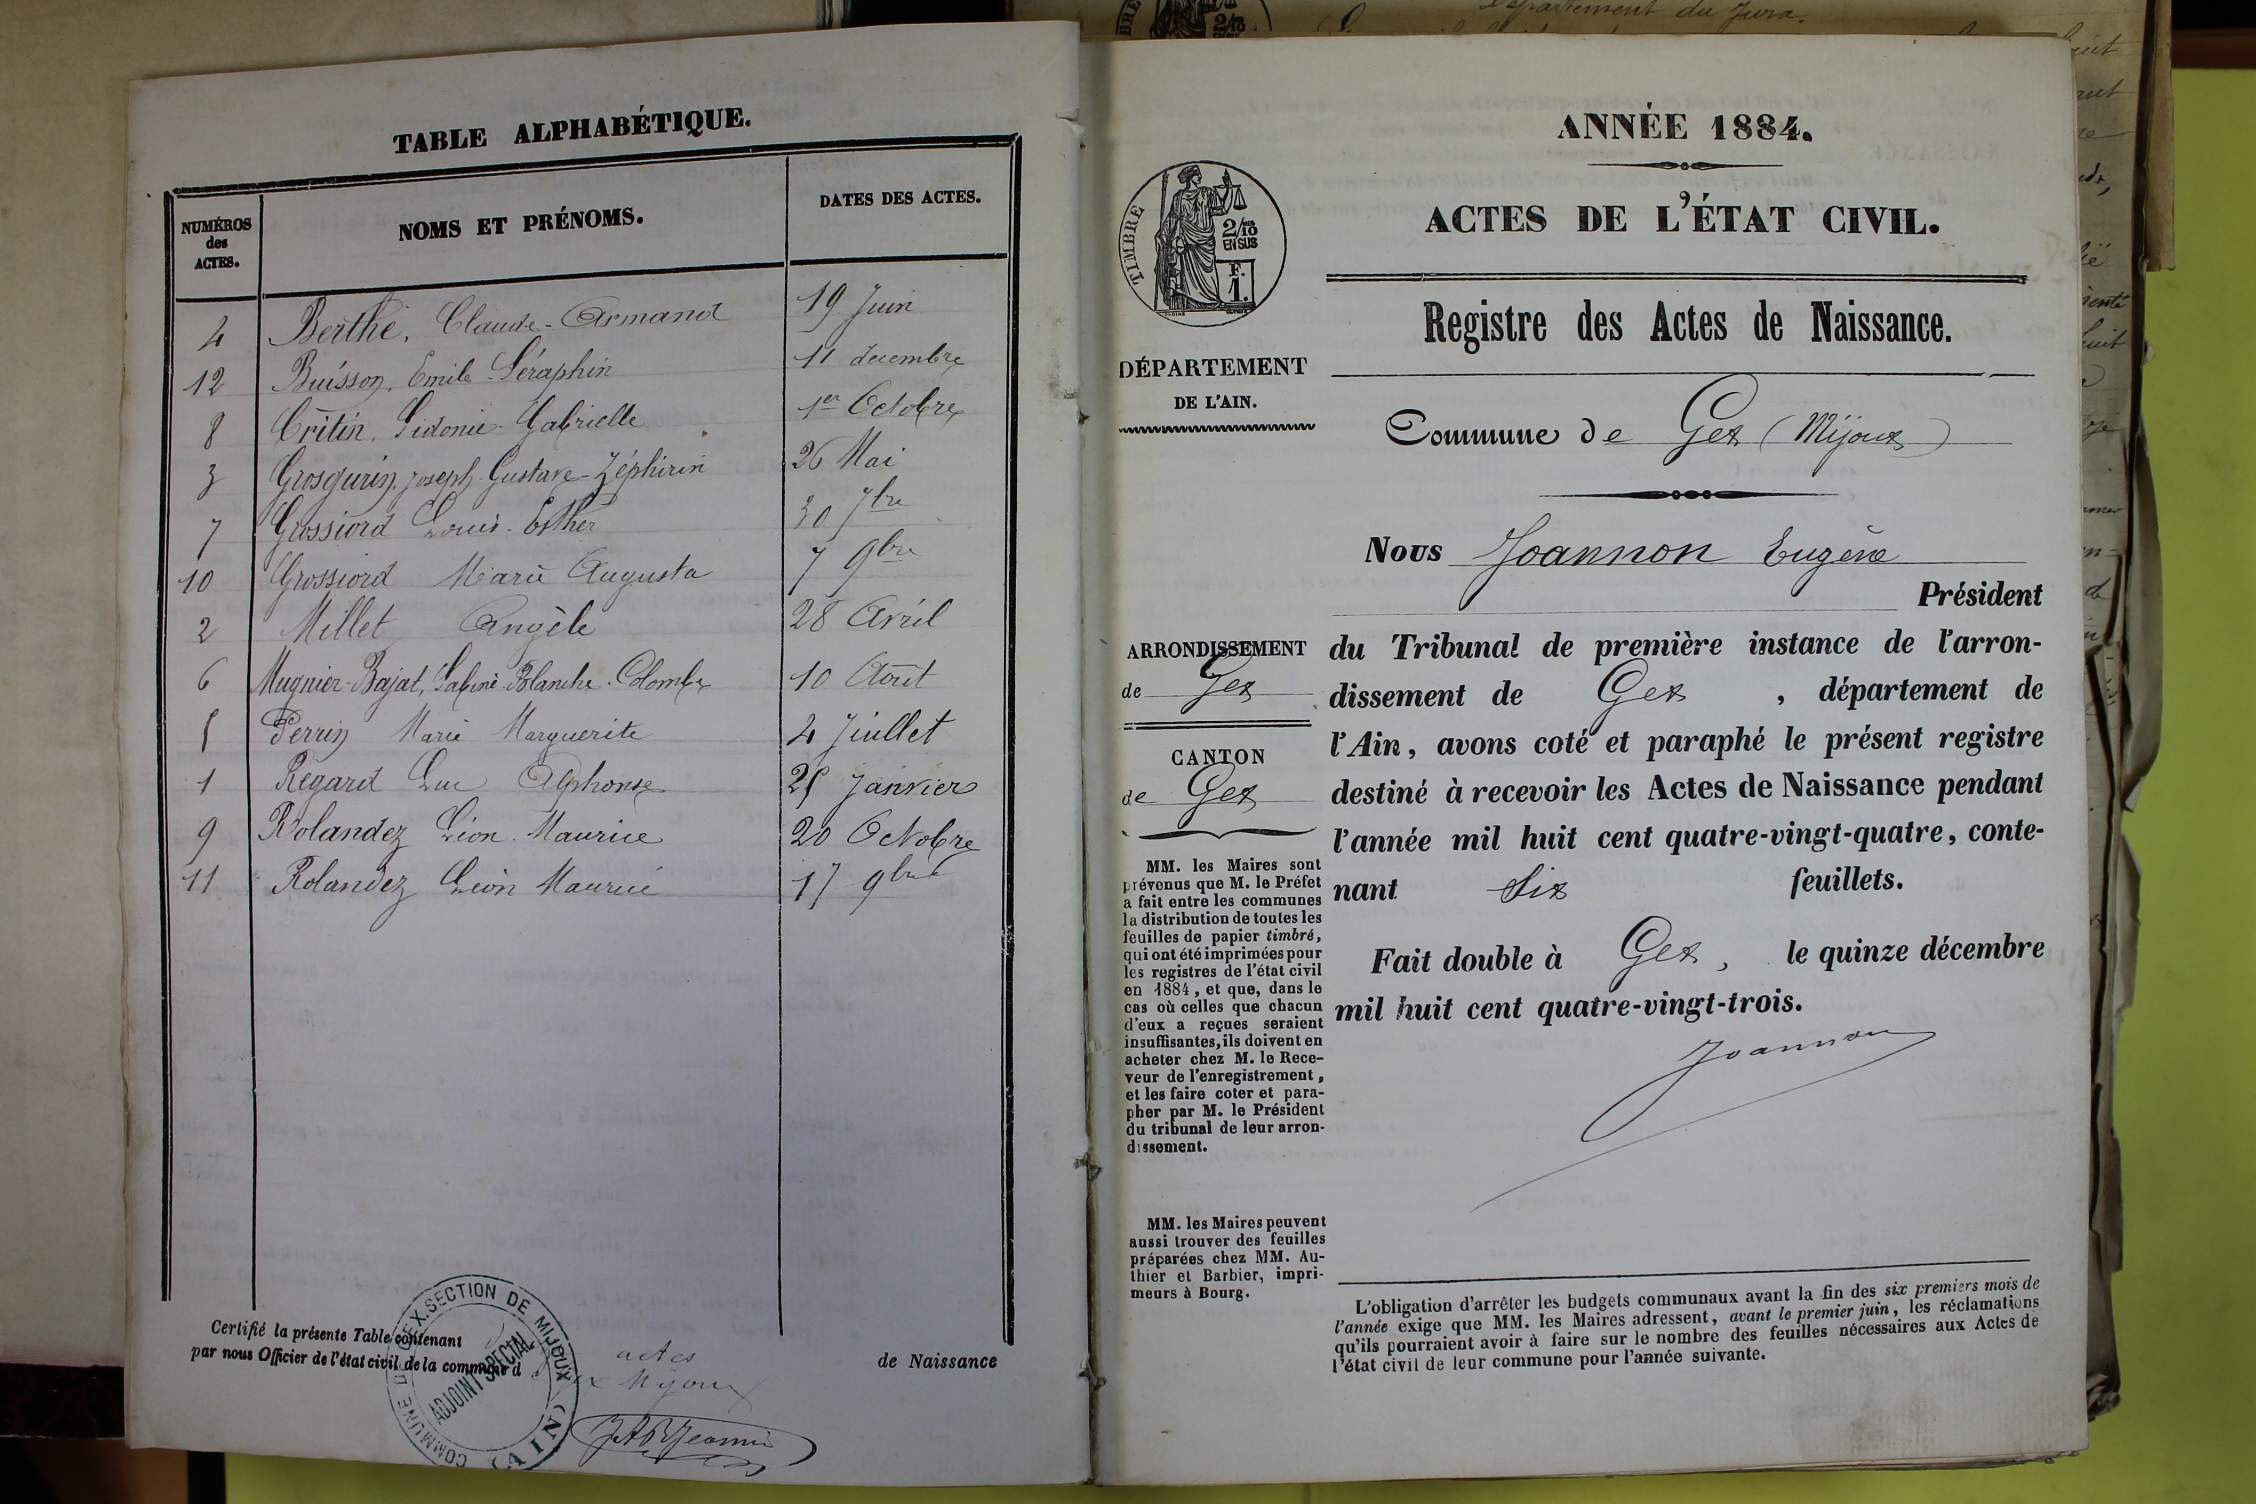 TABLE ALPHABÉTIQUE.
NUMÉROS des ACTES. NOMS ET PRÉNOMS. DATES DES ACTES.
4 Berthé, Claude-Armand 19 Juin
12 Buisson, Emile Séraphin 11 decembre
8 Critin, Sidonie Gabrielle 1er Octobre
3 Grosgurin, Joseph Gustave-Zéphirin 26 Mai
7 Grossiord Louis-Esther 30 7bre
10 Grossiord Marie Augusta 7 9bre
2 Millet Angèle 28 Avril
6 Mugnier-Bajat, Sabine Blanche Colombe 10 Août
5 Perrin Marie Marguerite 4 Juillet
1 Regard Luc Alphonse 25 Janvier
9 Rolandez Léon Maurice 20 Octobre
11 Rolandez Léon Maurice 17 9bre
Certifié la présente Table contenant actes de Naissance
par nous Officier de l'état civil de la commune d Mijoux
COMMUNE DE GEX. SECTION DE MIJOUX (AIN)
ADJOINT SPÉCIAL
ANNÉE 1884.
ACTES DE L'ÉTAT CIVIL.
TIMBRE
2/10 EN SUS
F. 1.
Registre des Actes de Naissance.
DÉPARTEMENT
DE L'AIN.
Commune de Gex (Mijoux)
Nous Joannon Eugène
Président
ARRONDISSEMENT
de Gex
CANTON
de Gex
du Tribunal de première instance de l'arron-
dissement de Gex , département de
l'Ain, avons coté et paraphé le présent registre
destiné à recevoir les Actes de Naissance pendant
l'année mil huit cent quatre-vingt-quatre, conte-
nant Six feuillets.
Fait double à Gex, le quinze décembre
mil huit cent quatre-vingt-trois.
Joannon
MM. les Maires sont
prévenus que M. le Préfet
a fait entre les communes
la distribution de toutes les
feuilles de papier timbré,
qui ont été imprimées pour
les registres de l'état civil
en 1884, et que, dans le
cas où celles que chacun
d'eux a reçues seraient
insuffisantes, ils doivent en
acheter chez M. le Rece-
veur de l'enregistrement,
et les faire coter et para-
pher par M. le Président
du tribunal de leur arron-
dissement.
MM. les Maires peuvent
aussi trouver des feuilles
préparées chez MM. Au-
thier et Barbier, impri-
meurs à Bourg.
L'obligation d'arrêter les budgets communaux avant la fin des six premiers mois de
l'année exige que MM. les Maires adressent, avant le premier juin, les réclamations
qu'ils pourraient avoir à faire sur le nombre des feuilles nécessaires aux Actes de
l'état civil de leur commune pour l'année suivante.
Département du Jura.